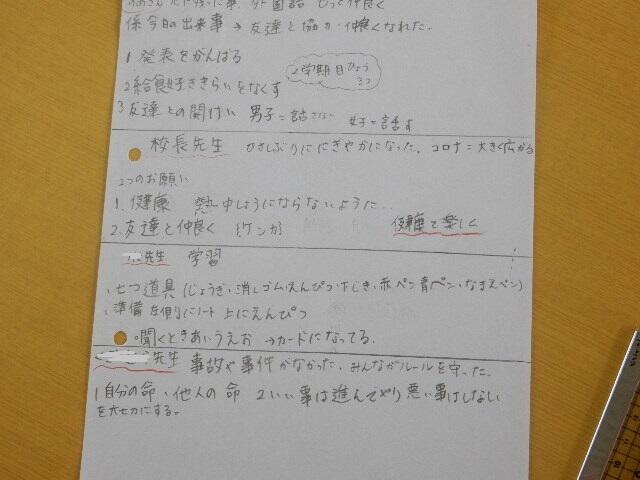 心に残った事、外国語 もっと仲良く
係 今日の出来事 → 友達と協力・仲良くなれた。
1 発表をがんばる
2学期目ひょう 3つ
2給食好ききらいをなくす
3友達との関付い 男子=話さない 女子=話す
校長先生 ひさしぶりににぎやかになった。コロナ=大きく広がる
2つのお願い
1.健康 熱中しようにならないように..
2.友達と仲良く (ケンカ) 健康で楽しく
先生 学習
・七つ道具(じょうぎ・消しゴム・えんぴつ・下じき・赤ペン・青ペン・なまえペン)
・準備 左側にノート 上にえんぴつ
・聞くときあいうえお →カードになってる。
先生 事故や事件がなかった。みんながルールを守った。
1自分の命・他人の命 2いい事は進んでやり悪い事はしない
を大切にする。